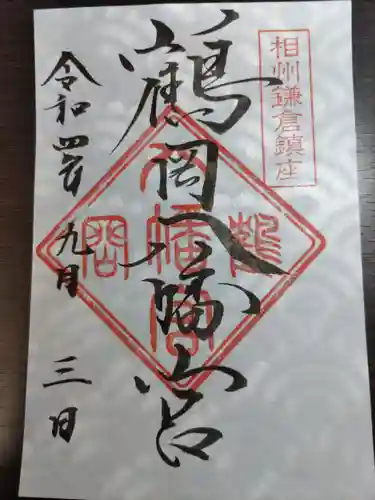 相州鎌倉鎮座
鶴岡八幡宮
鶴
八幡宮
岡
令和四年九月三日